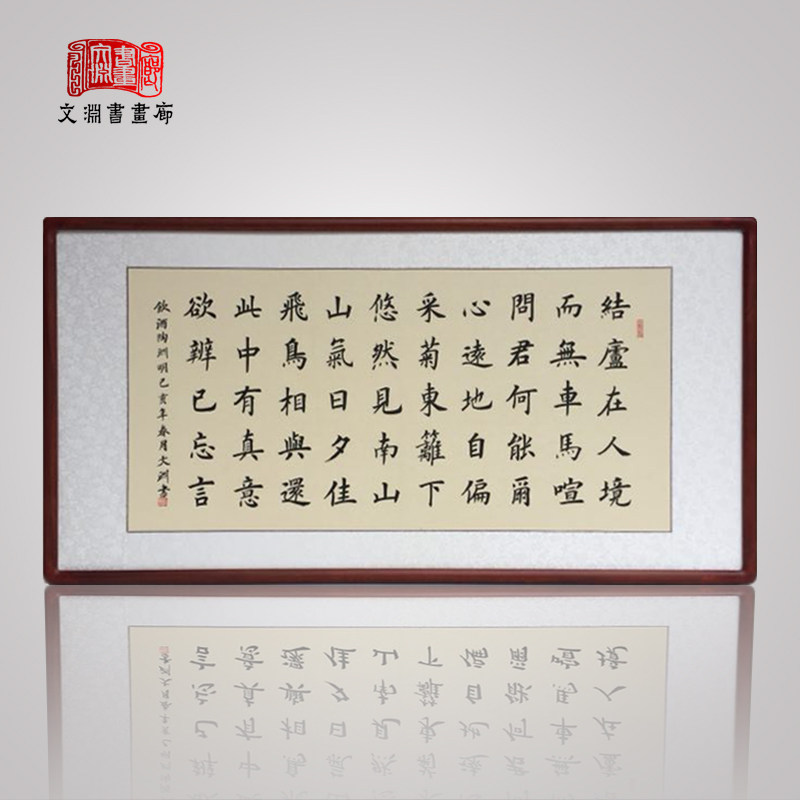 文淵書畫廊
結廬在人境
而無車馬喧
問君何能爾
心遠地自偏
采菊東籬下
悠然見南山
山氣日夕佳
飛鳥相與還
此中有真意
欲辨已忘言
飲酒陶淵明己亥年春月文淵書